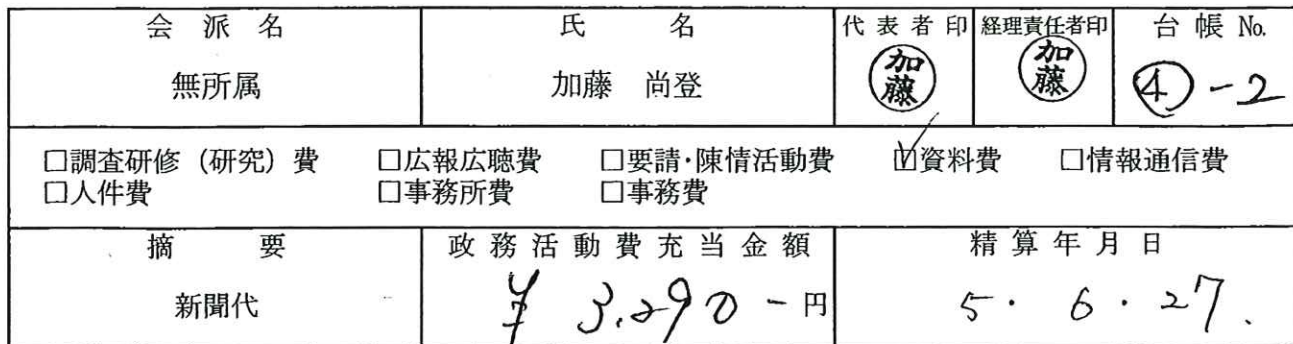 会派名 氏名 代表者印 経理責任者印 台帳No.
無所属 加藤 尚登 加藤 加藤 ④-2
□調査研修（研究）費 □広報広聴費 □要請・陳情活動費 ☑資料費 □情報通信費
□人件費 □事務所費 □事務費
摘要 政務活動費充当金額 精算年月日
新聞代 ¥ 3,290-円 5・6・27.